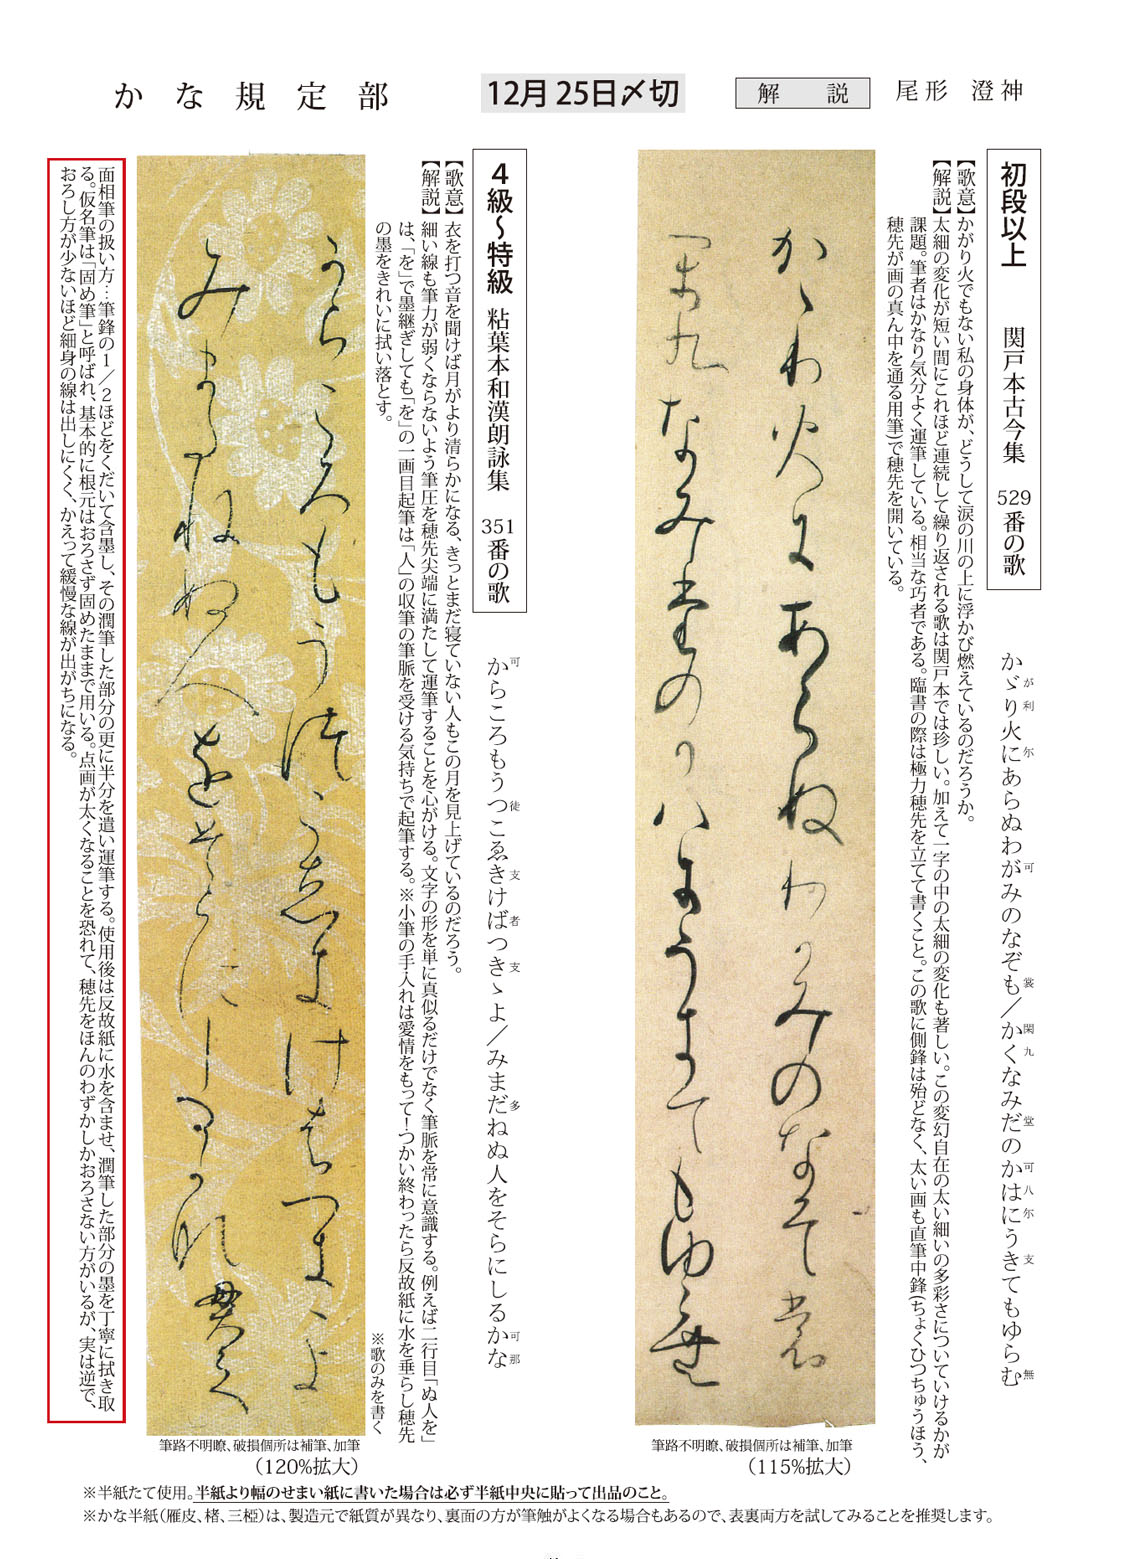 かな規定部
12月25日〆切
解 説
尾形 澄神
初段以上 関戸本古今集 529番の歌
かゞり火にあらぬわがみのなぞも／かくなみだのかはにうきてもゆらむ
が利 尓 可 裳 閑九 堂 可八尓 支 無
【歌意】かがり火でもない私の身体が、どうして涙の川の上に浮かび燃えているのだろうか。
【解説】太細の変化が短い間にこれほど連続して繰り返される歌は関戸本では珍しい。加えて一字の中の太細の変化も著しい。この変幻自在の太い細いの多彩さについていけるかが
課題。筆者はかなり気分よく運筆している。相当な巧者である。臨書の際は極力穂先を立てて書くこと。この歌に側鋒は殆どなく、太い画も直筆中鋒(ちょくひつちゅうほう、
穂先が画の真ん中を通る用筆)で穂先を開いている。
かゝり火尓あらぬわ可みのなそ裳
閑九なみ堂の可八尓うき弖もゆら無
筆路不明瞭、破損個所は補筆、加筆
（115%拡大）
4級〜特級 粘葉本和漢朗詠集 351番の歌
からころもうつこゑきけばつきゝよ／みまだねぬ人をそらにしるかな
可 徒 支 者 支 多 可那
【歌意】衣を打つ音を聞けば月がより清らかになる、きっとまだ寝ていない人もこの月を見上げているのだろう。
【解説】細い線も筆力が弱くならないよう筆圧を穂先尖端に満たして運筆することを心がける。文字の形を単に真似るだけでなく筆脈を常に意識する。例えば二行目「ぬ人を」
は、「を」で墨継ぎしても「を」の一画目起筆は「人」の収筆の筆脈を受ける気持ちで起筆する。※小筆の手入れは愛情をもって！つかい終わったら反故紙に水を垂らし穂先
の墨をきれいに拭い落とす。
※歌のみを書く
可らころもうつこゑ支け者つ支ゝよ
みま多ねぬ人をそらにしる可那 貫之
筆路不明瞭、破損個所は補筆、加筆
（120%拡大）
面相筆の扱い方…筆鋒の1／2ほどをくだいて含墨し、その潤筆した部分の更に半分を遣い運筆する。使用後は反故紙に水を含ませ、潤筆した部分の墨を丁寧に拭き取
る。仮名筆は「固め筆」と呼ばれ、基本的に根元はおろさず固めたままで用いる。点画が太くなることを恐れて、穂先をほんのわずかしかおろさない方がいるが、実は逆で、
おろし方が少ないほど細身の線は出しにくく、かえって緩慢な線が出がちになる。
※半紙たて使用。半紙より幅のせまい紙に書いた場合は必ず半紙中央に貼って出品のこと。
※かな半紙(雁皮、楮、三椏)は、製造元で紙質が異なり、裏面の方が筆触がよくなる場合もあるので、表裏両方を試してみることを推奨します。